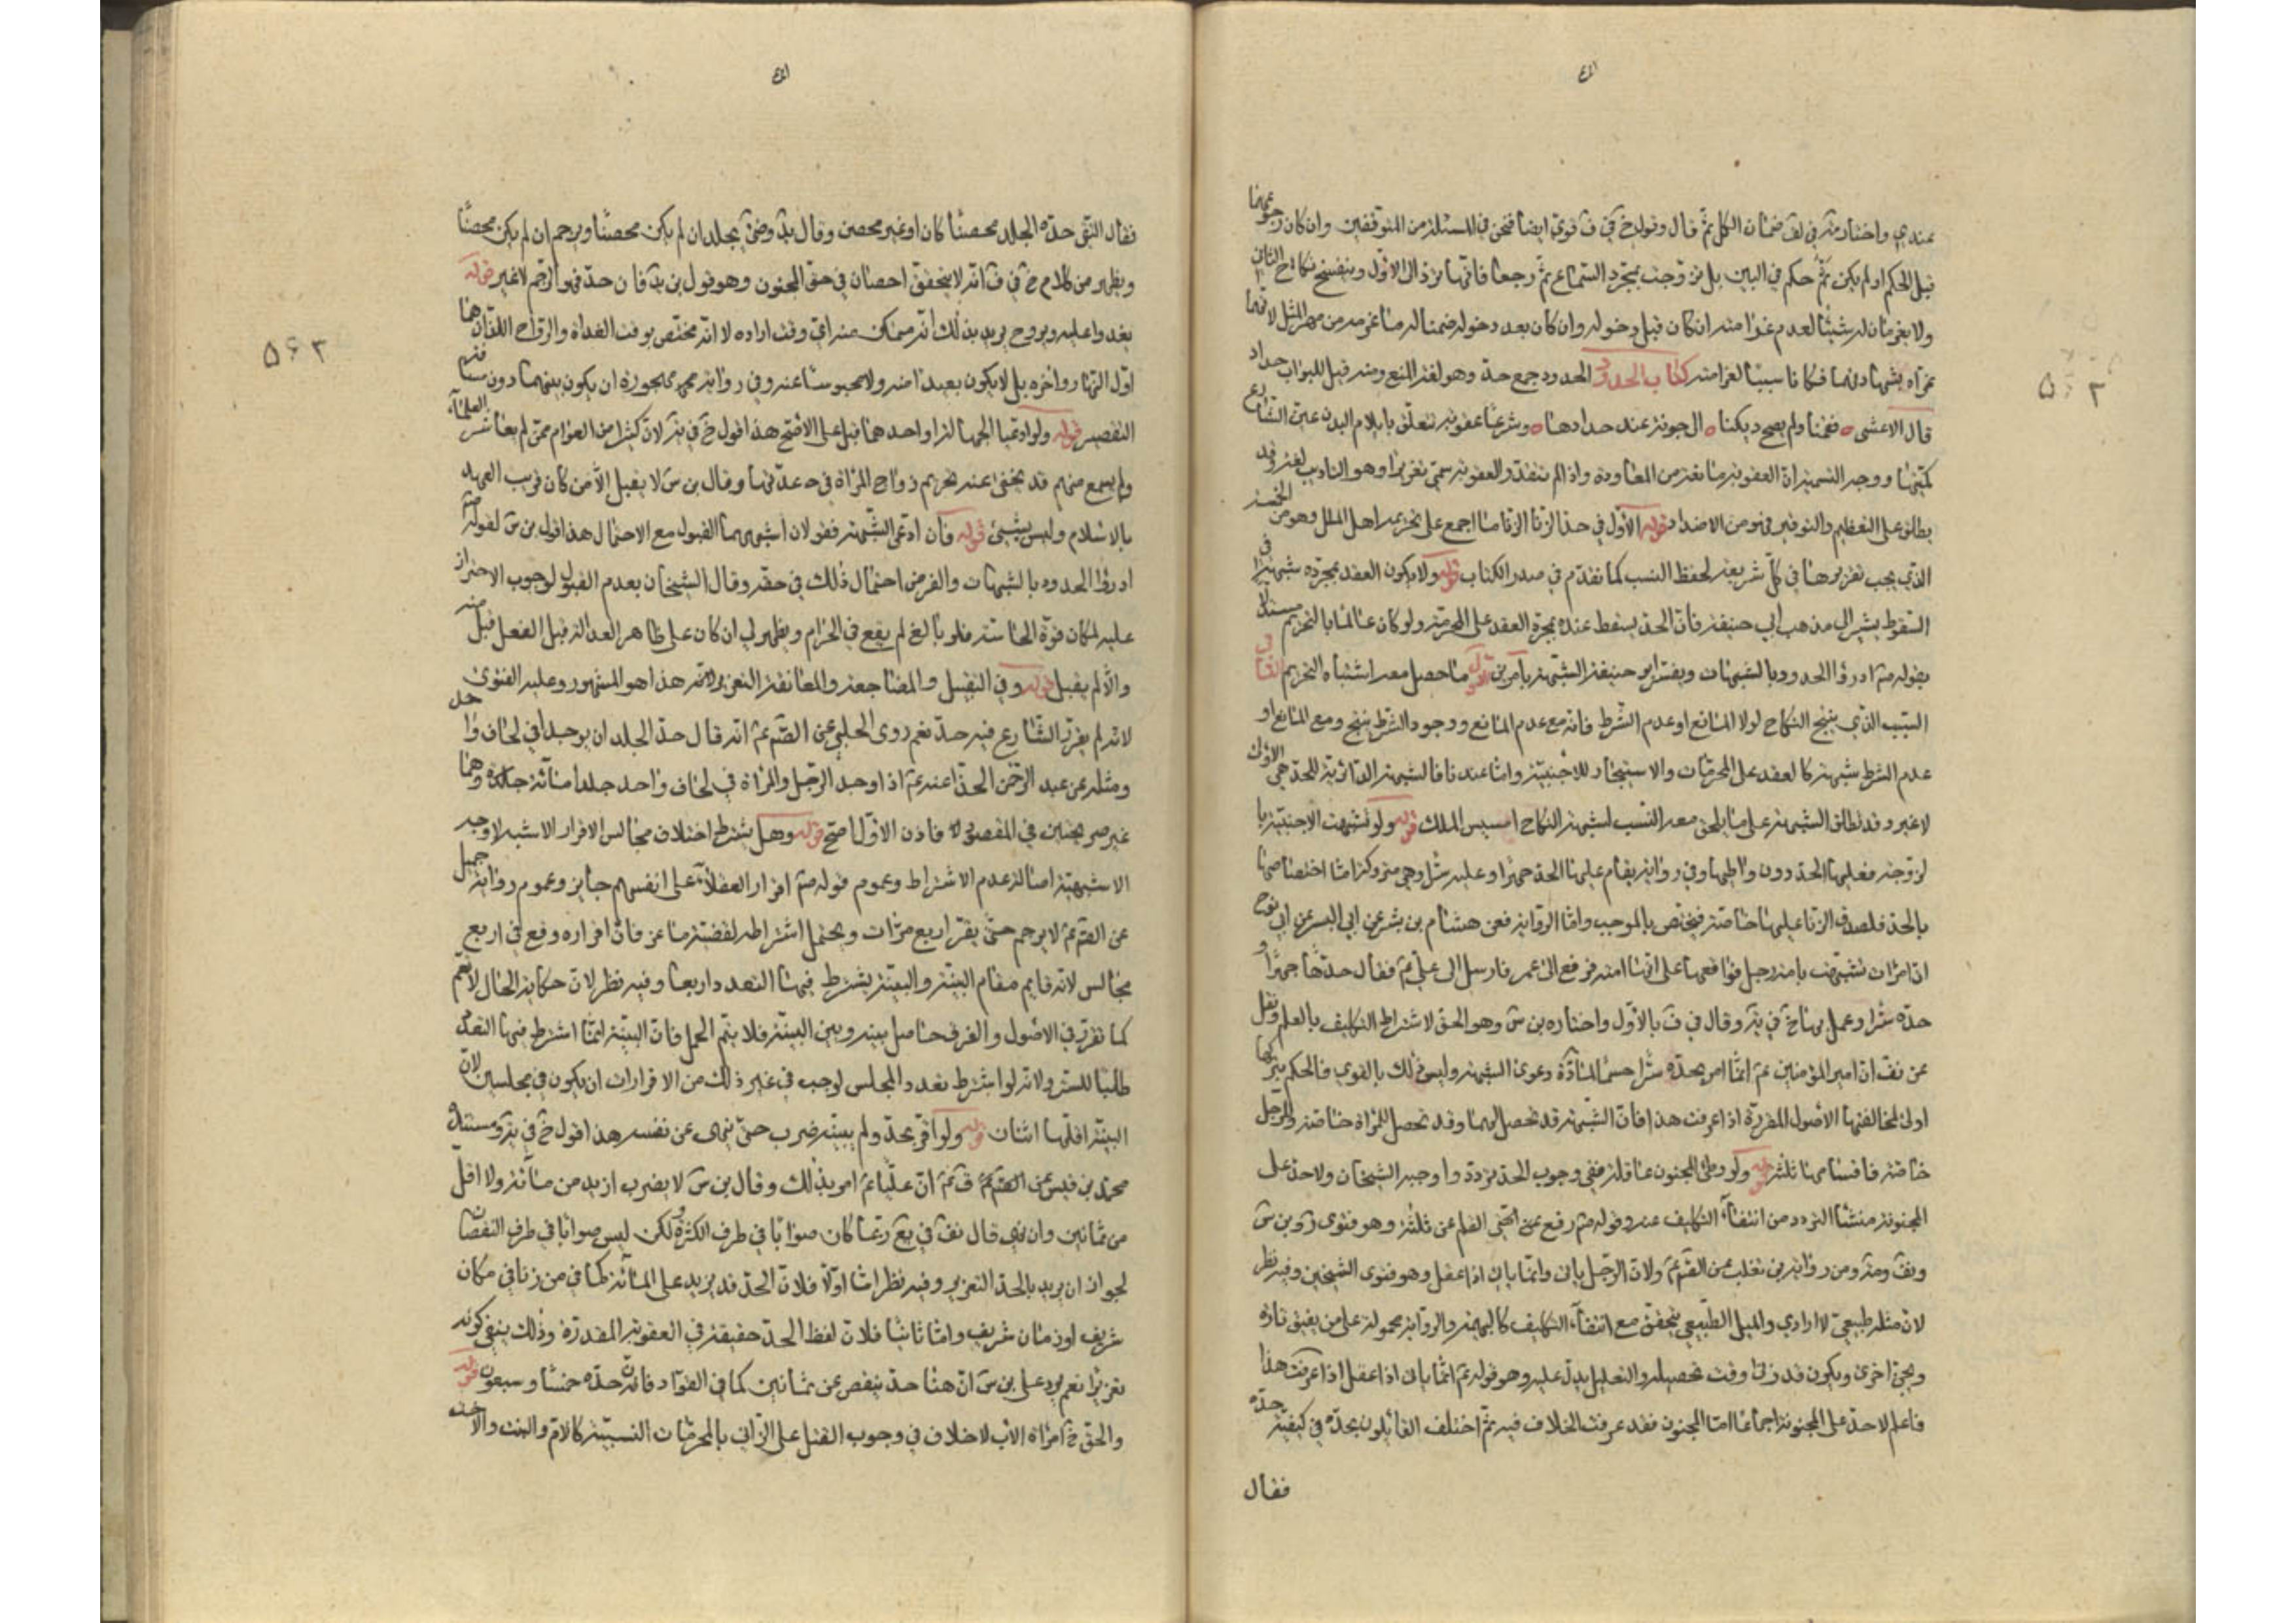 عندي واختاره في لف ضمان الكل ثم قال وقول خ في ف قوي ايضا فنحن في المسئلة من المتوقفين وان كان رجوعهما
قبل الحكم او لم يكن ثم حكم في البين بل تزوجت بمجرد السماع ثم رجعا فانها ترد الى الاول وينفسخ نكاح الثاني
ولا يغرمان له شيئا لعدم غرامته ان كان قبل دخوله وان كان بعد دخوله ضمنا له ما غرمه من مهر المثل لانهما
بشهادتهما فكانا سببا لغرامته كتاب الحدود الحدود جمع حد وهو لغة المنع ومنه قيل للبواب حداد
قال الاعشى فقمنا ولم يصح ديكنا الى جونة عند حدادها وشرعا عقوبة تتعلق بايلام البدن عين الشارع
كميتها ووجه التسمية ان العقوبة مانعة من المعاودة واذا لم تتقدر العقوبة سمي تعزيرا وهو التاديب لغة وقد
يطلق على التعظيم والتوقير فهو من الاضداد قوله الاول في حد الزنا الزنا مما اجمع على تحريمه اهل الملل وهو من الخمسة
الذي يجب تقريرها في كل شريعة لحفظ النسب كما تقدم في صدر الكتاب قوله ولا يكون العقد بمجرده شبهة في
السقوط يشير الى مذهب ابي حنيفة فان الحد يسقط عنده بمجرد العقد على المحرمة ولو كان عالما بالتحريم مستدلا
بقوله ص ادرؤا الحدود بالشبهات ويفسر ابو حنيفة الشبهة بامرين الاول ما حصل معه اشتباه التحريم الثاني
السبب الذي ينتج النكاح لولا المانع او عدم الشرط فانه مع عدم المانع ووجود الشرط ينتج ومع المانع او
عدم الشرط شبهة كالعقد على المحرمات والاستيجار للاجنبية واما عندنا فالشبهة الدارئة للحد هي الاول
لا غير وقد تطلق الشبهة على ما يلحق معه النسب لشبهة النكاح الملك قوله ولو تشبهت الاجنبية با
لزوجة فعليها الحد دون واطيها وفي رواية يقام عليها الحد جهرا وعليه سرا وهي متروكة اما اختصاصها
بالحد فلصدق الزنا عليها خاصة فيختص بالموجب واما الرواية فعن هشام بن بشر عن ابي البسر عن ابي نوح
ان امراة تشبهت بامة رجل فواقعها على انها امته فرفع الى عمر فارسل الى علي ع فقال حدها جهرا و
حده سرا وعمل بها خ في ية وقال في ف بالاول واختاره بن س وهو الحق لاشتراط التكليف بالعلم ونقل
عن نف ان امير المؤمنين ع انما امر بحده سرا حسما لمادة دعوى الشبهة وليس ذلك بالقوي فالحكم بتركها
اولى لمخالفتها الاصول المقررة اذا عرفت هذا فان الشبهة قد تحصل لهما وقد تحصل للمراة خاصة وللرجل
خاصة فاقسامها ثلثة قوله ولو وطئ المجنون عاقلة ففي وجوب الحد تردد واوجبه الشيخان ولا حد على
المجنونة منشا التردد من انتفاء التكليف عنه وقوله ص رفع القلم عن ثلثة وهو فتوى وبن س
ونف ومن رواية بن تغلب عن الصم ع ولان الرجل ياتي وانما ياتي اذا عقل وهو فتوى الشيخين وفيه نظر
لان مثله طبيعي لا ارادي والميل الطبيعي يتحقق مع انتفاء التكليف كالبهيمة والرواية محمولة على من يفيق تارة
ويجن اخرى ويكون قد زنى وقت تحصيله والتعليل يدل عليه وهو قوله ع انما ياتي اذا عقل اذا عرفت هذا
فاعلم لا حد على المجنونة اجماعا اما المجنون فقد عرفت الخلاف فيه ثم اختلف القائلون بحده في كيفية حده
فقال
۵۶۲
فقال التقي حده الجلد محصنا كان او غير محصن وقال يجلد ان لم يكن محصنا ويرجم ان لم يكن محصنا
ويظهر من كلام خ في ف انه لا يتحقق احصان في حق المجنون وهو قول بن فان حد فهو الرجم لا غير قوله
يغدوا عليه ويروح يريد بذلك انه متمكن منه اي وقت اراده لا انه مختص بوقت الغداة والرواح اللذان هما
اول النهار واخره بل لا يكون بعيدا منه ولا محبوسا عنه وفي رواية مهجورة ان يكون بينهما دون مسافة
التقصير قوله ولو ادعيا الجهالة او احدهما قبل على الاصح هذا قول خ في ية لان كثيرا من العوام ممن لم يعاشر العلماء
ولم يسمع منهم قد يخفى عنه تحريم زواج المراة في عدتها وقال بن س لا يقبل الا من كان قريب العهد
بالاسلام وليس بشيئ قوله فان ادعى الشبهة فقولان اشبههما القبول مع الاحتمال هذا قول بن س لقوله ص
ادرؤا الحدود بالشبهات والفرض احتمال ذلك في حقه وقال الشيخان بعدم القبول لوجوب الاحتراز
عليه لمكان قوة الحاسة فلو بالغ لم يقع في الحرام ويظهر لي ان كان على ظاهر العدالة قبل الفعل قبل منه
والا لم يقبل قوله وفي التقبيل والمضاجعة والمعانقة التعزير هذا هو المشهور وعليه الفتوى
لانه لم يقرر الشارع فيه حد نعم روى الحلبي عن الصم ع انه قال حد الجلد ان يوجدا في لحاف واحد
ومثله عن عبد الرحمن الحذا عنه ع اذا وجد الرجل والمراة في لحاف واحد جلدا مائة جلدة وهما
غير صريحتين في المقصود فاذن الاول اصح قوله وهل يشترط اختلاف مجالس الاقرار الاشبه لا وجه
الاشبهية اصالة عدم الاشتراط وعموم قوله ص اقرار العقلاء على انفسهم جايز وعموم رواية جميل
عن الصم ع لا يرجم حتى يقر اربع مرات ويحتمل اشتراطه لقضية ماعز فان اقراره وقع في اربع
مجالس لانه قايم مقام البينة والبينة يشترط فيها التعدد اربعا وفيه نظر لان حكاية الحال لا تعم
كما تقرر في الاصول والفرق حاصل بينه وبين البينة فلا يتم الحمل فان البينة انما اشترط فيها التعدد
طلبا للستر ولانه لو اشترط تعدد المجلس لوجب في غير ذلك من الاقرارات ان يكون في مجلسين لان
البينة اقلها اثنان قوله ولو اقر بحد ولم يبينه ضرب حتى ينهى عن نفسه هذا قول خ في ية ومستنده
محمد بن قيس عن ان عليا ع امر بذلك وقال بن س لا يضرب ازيد من مائة ولا اقل
من ثمانين وان نهي قال نف في يع ربما كان صوابا في طرف الكثرة ولكن ليس صوابا في طرف النقصان
لجواز ان يريد بالحد التعزير وفيه نظر اما اولا فلان الحد قد يزيد على المائة كما في من زنا في مكان
شريف او زمان شريف واما ثانيا فلان لفظ الحد حقيقة في العقوبة المقدرة وذلك ينفي كونه
تعزيرا نعم يرد على بن س ان هنا حد ينقص عن ثمانين كما في القواد فانه حده خمسا وسبعون قوله
والحق خ امراة الاب لا خلاف في وجوب القتل على الزاني بالمحرمات النسبية كالام والبنت والاخت
۵۶۳